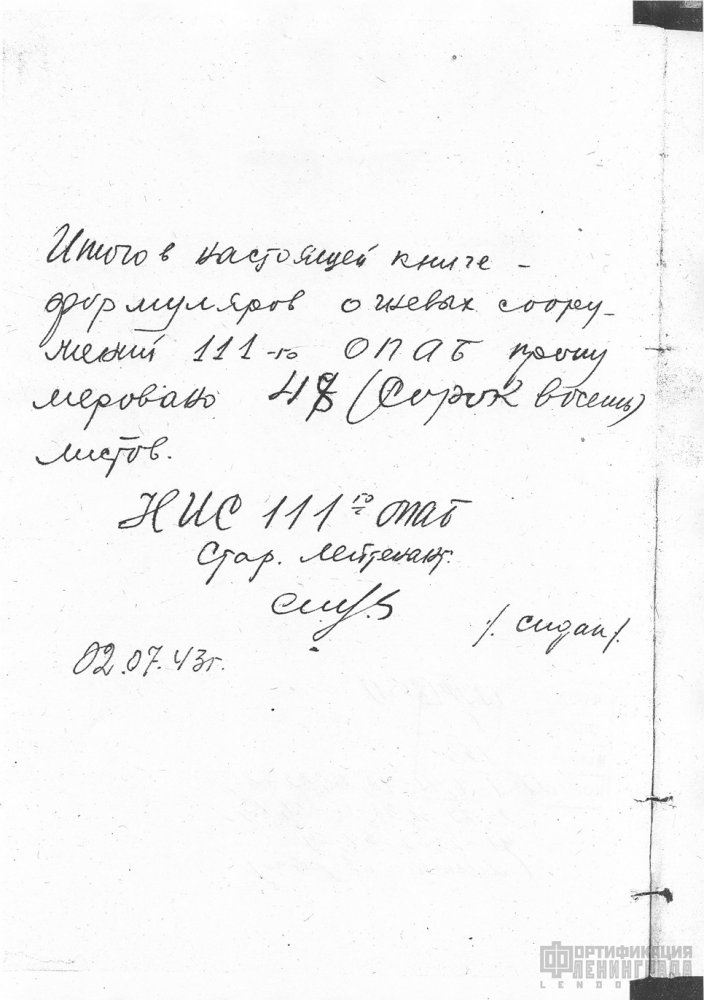 Итого в настоящей книге -
формуляров огневых соору-
жений 111-го ОПАБ прону
меровано 48 (Сорок восемь)
листов.
НИС 111го ОПАБ
Стар. лейтенант.
/. Сидак /.
02.07.43г.
ФОРТИФИКАЦИЯ
ЛЕНИНГРАДА